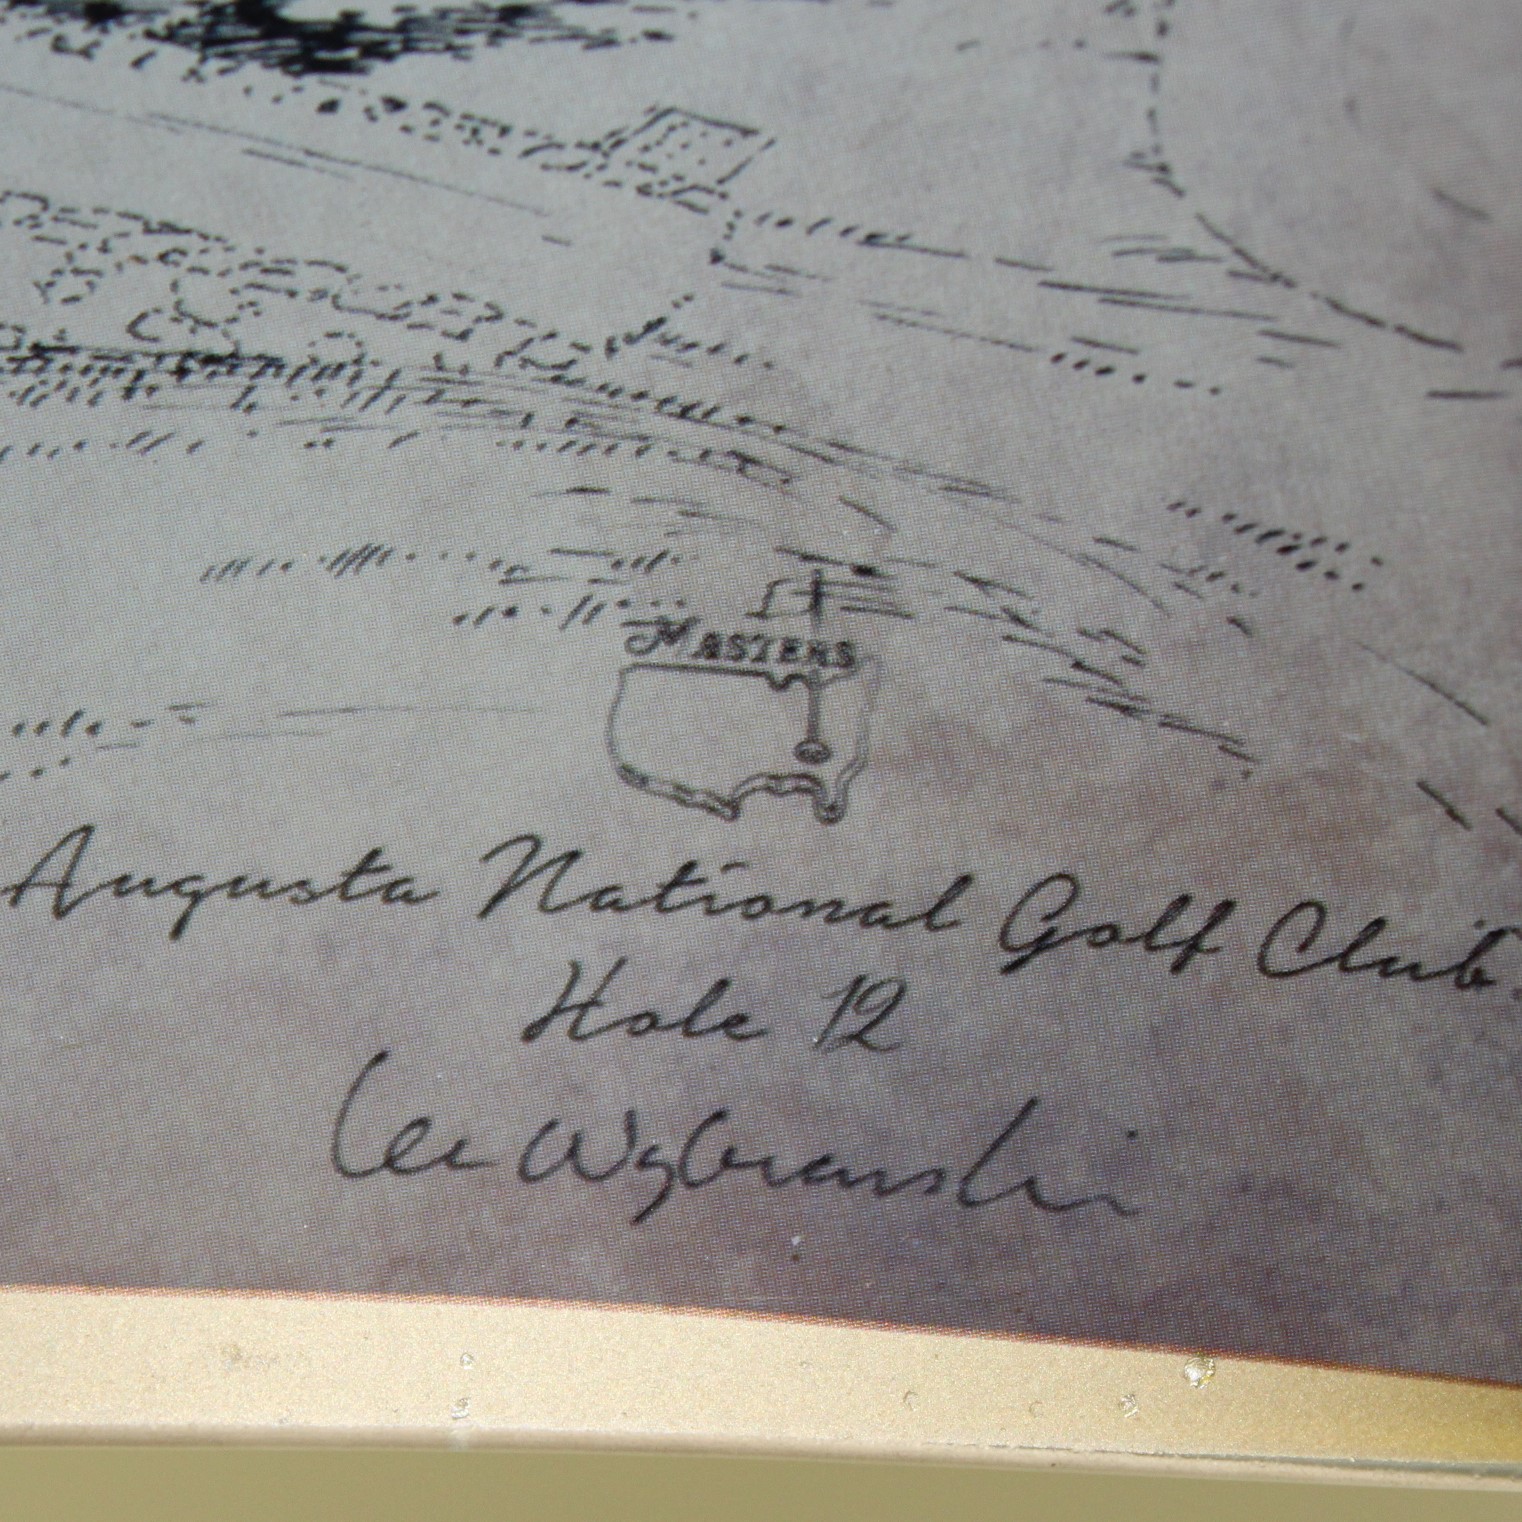 MASTERS
Augusta National Golf Club.
Hole 12
Lee Wybranski